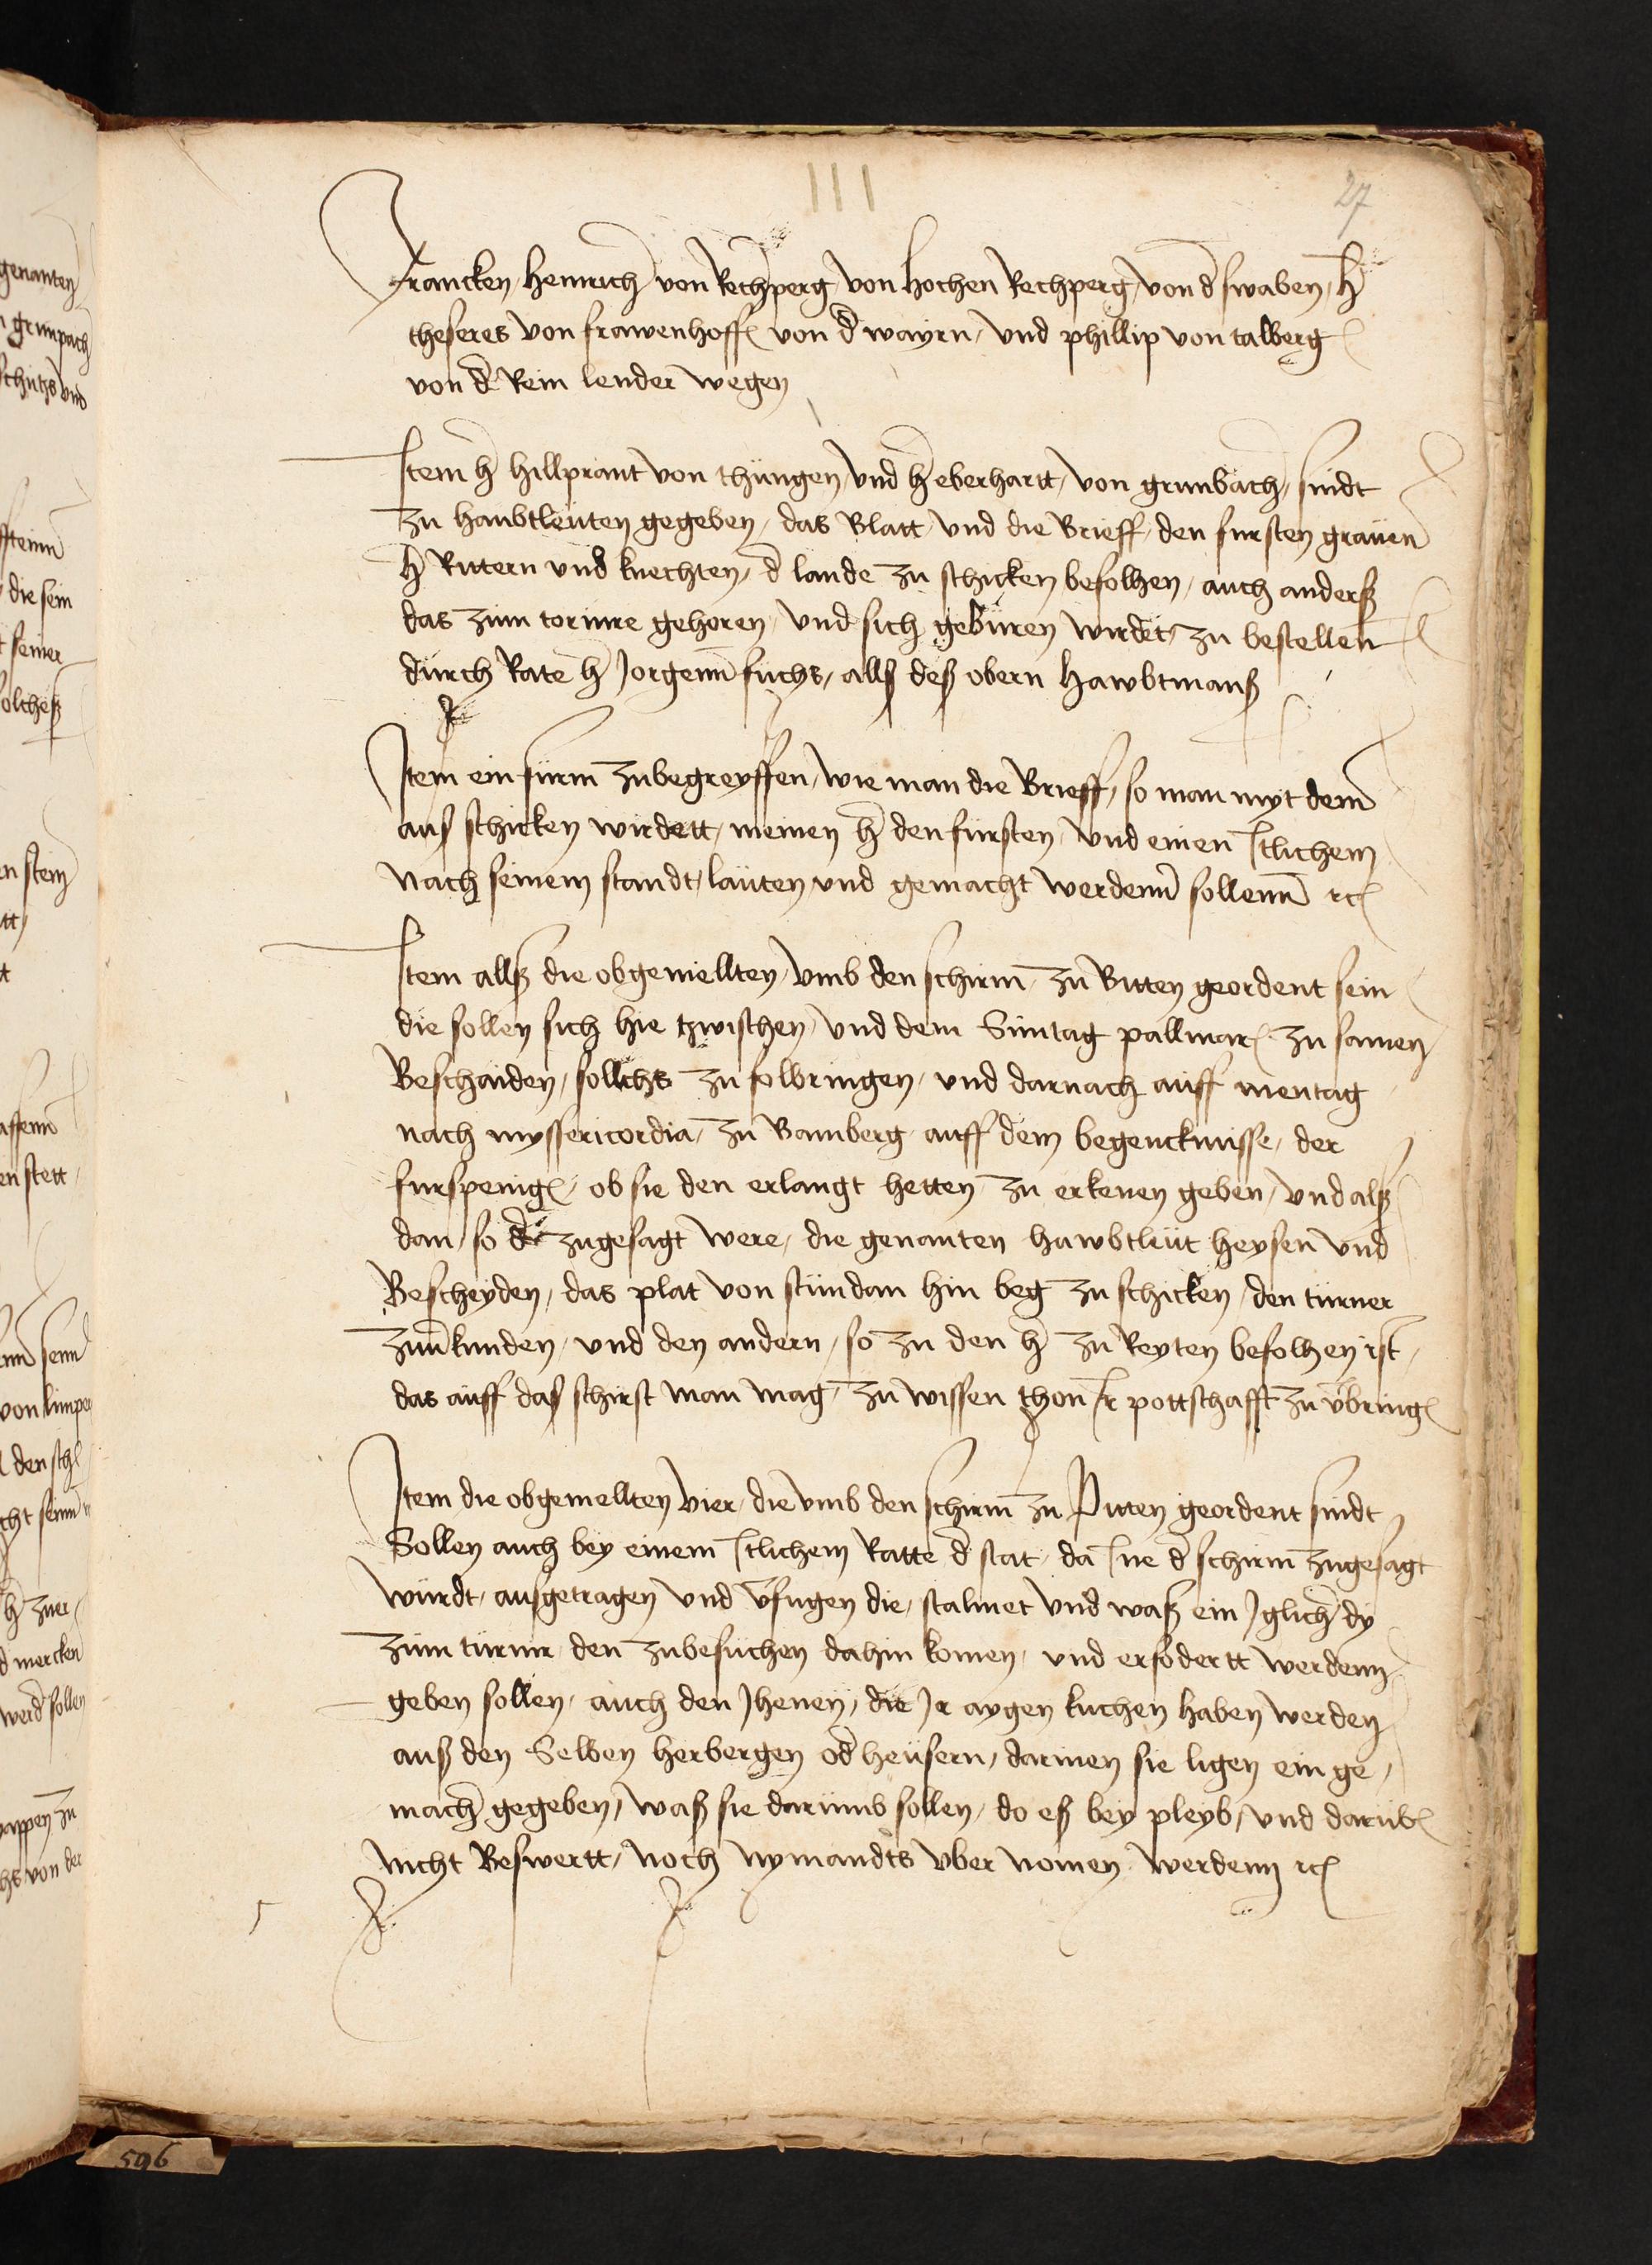 III
27
Francken, Heinrich von Rechperg von Hochen Rechperg, von d swaben, h
theseres von frawenhoff von d wayrn, und phillip von talberg
von d Rein lender wegen
Item h hillprant von thüngen und h eberhartt, von grunbach, sindt
zu haubtleuten gegeben, das Blatt und die Brieff, den fursten graüen
h Rittern und knechten, d lande zu schicken befolhen, auch anderß
das züm tornire gehoren, und sich gebüren wirdet, zu bestellen
durch Rate h Jorgenn fuchs, allß deß obern Hawbtmanß
Item ein fürm zubegreyffen, wie man die Brieff, so man myt dem
auß schicken wirdett, meinen h den fürsten, und einen Itlichem
nach seinem standt, lauten und gemacht werdenn sollenn rc
Item allß die obgemellten, umb den schirm, zu Bitten geordent sein
die sollen sich hie tzwischen, und dem Suntag pallmar zu samen
Beschaiden, sollchs zu folbringen, und darnach auff mentag
nach myssericordia, zu Bamberg auff dem begencknisse, der
furspenig, ob sie den erlangt hetten, zu erkenen geben, und alß
dan, so zugesagt were, die genanten hawbtleüt heysen und
Bescheyden, das plat von stündan hin beg zu schicken, den türner
zuuerkunden, und den andern, so zu den h zu Reyten befolhen ist,
das auff daß schirst man mag, zu wissen thon Ir pottschafft zu vbring
Item die obgemellten vier, die umb den schirm zu Pitten geordent sindt
Sollen auch bey einem Itlichem Ratte d stat, da Ine d schirm zugesagt
würdt, außgetragen und vfugen die, stalmet und waß ein Jglicher dy
züm türnir, den zubesuchen dahin komen, und erfodertt werdenn,
geben sollen, auch den Jhenen, die Jr aygen kuchen haben werden
auß den Selben herbergen od heüsern, darinen sie ligen ein ge,
mach gegeben, waß sie darümb sollen, do eß bey pleyb, und darüb
nicht Beswertt, noch nymandts vber nomen werdenn rc
596